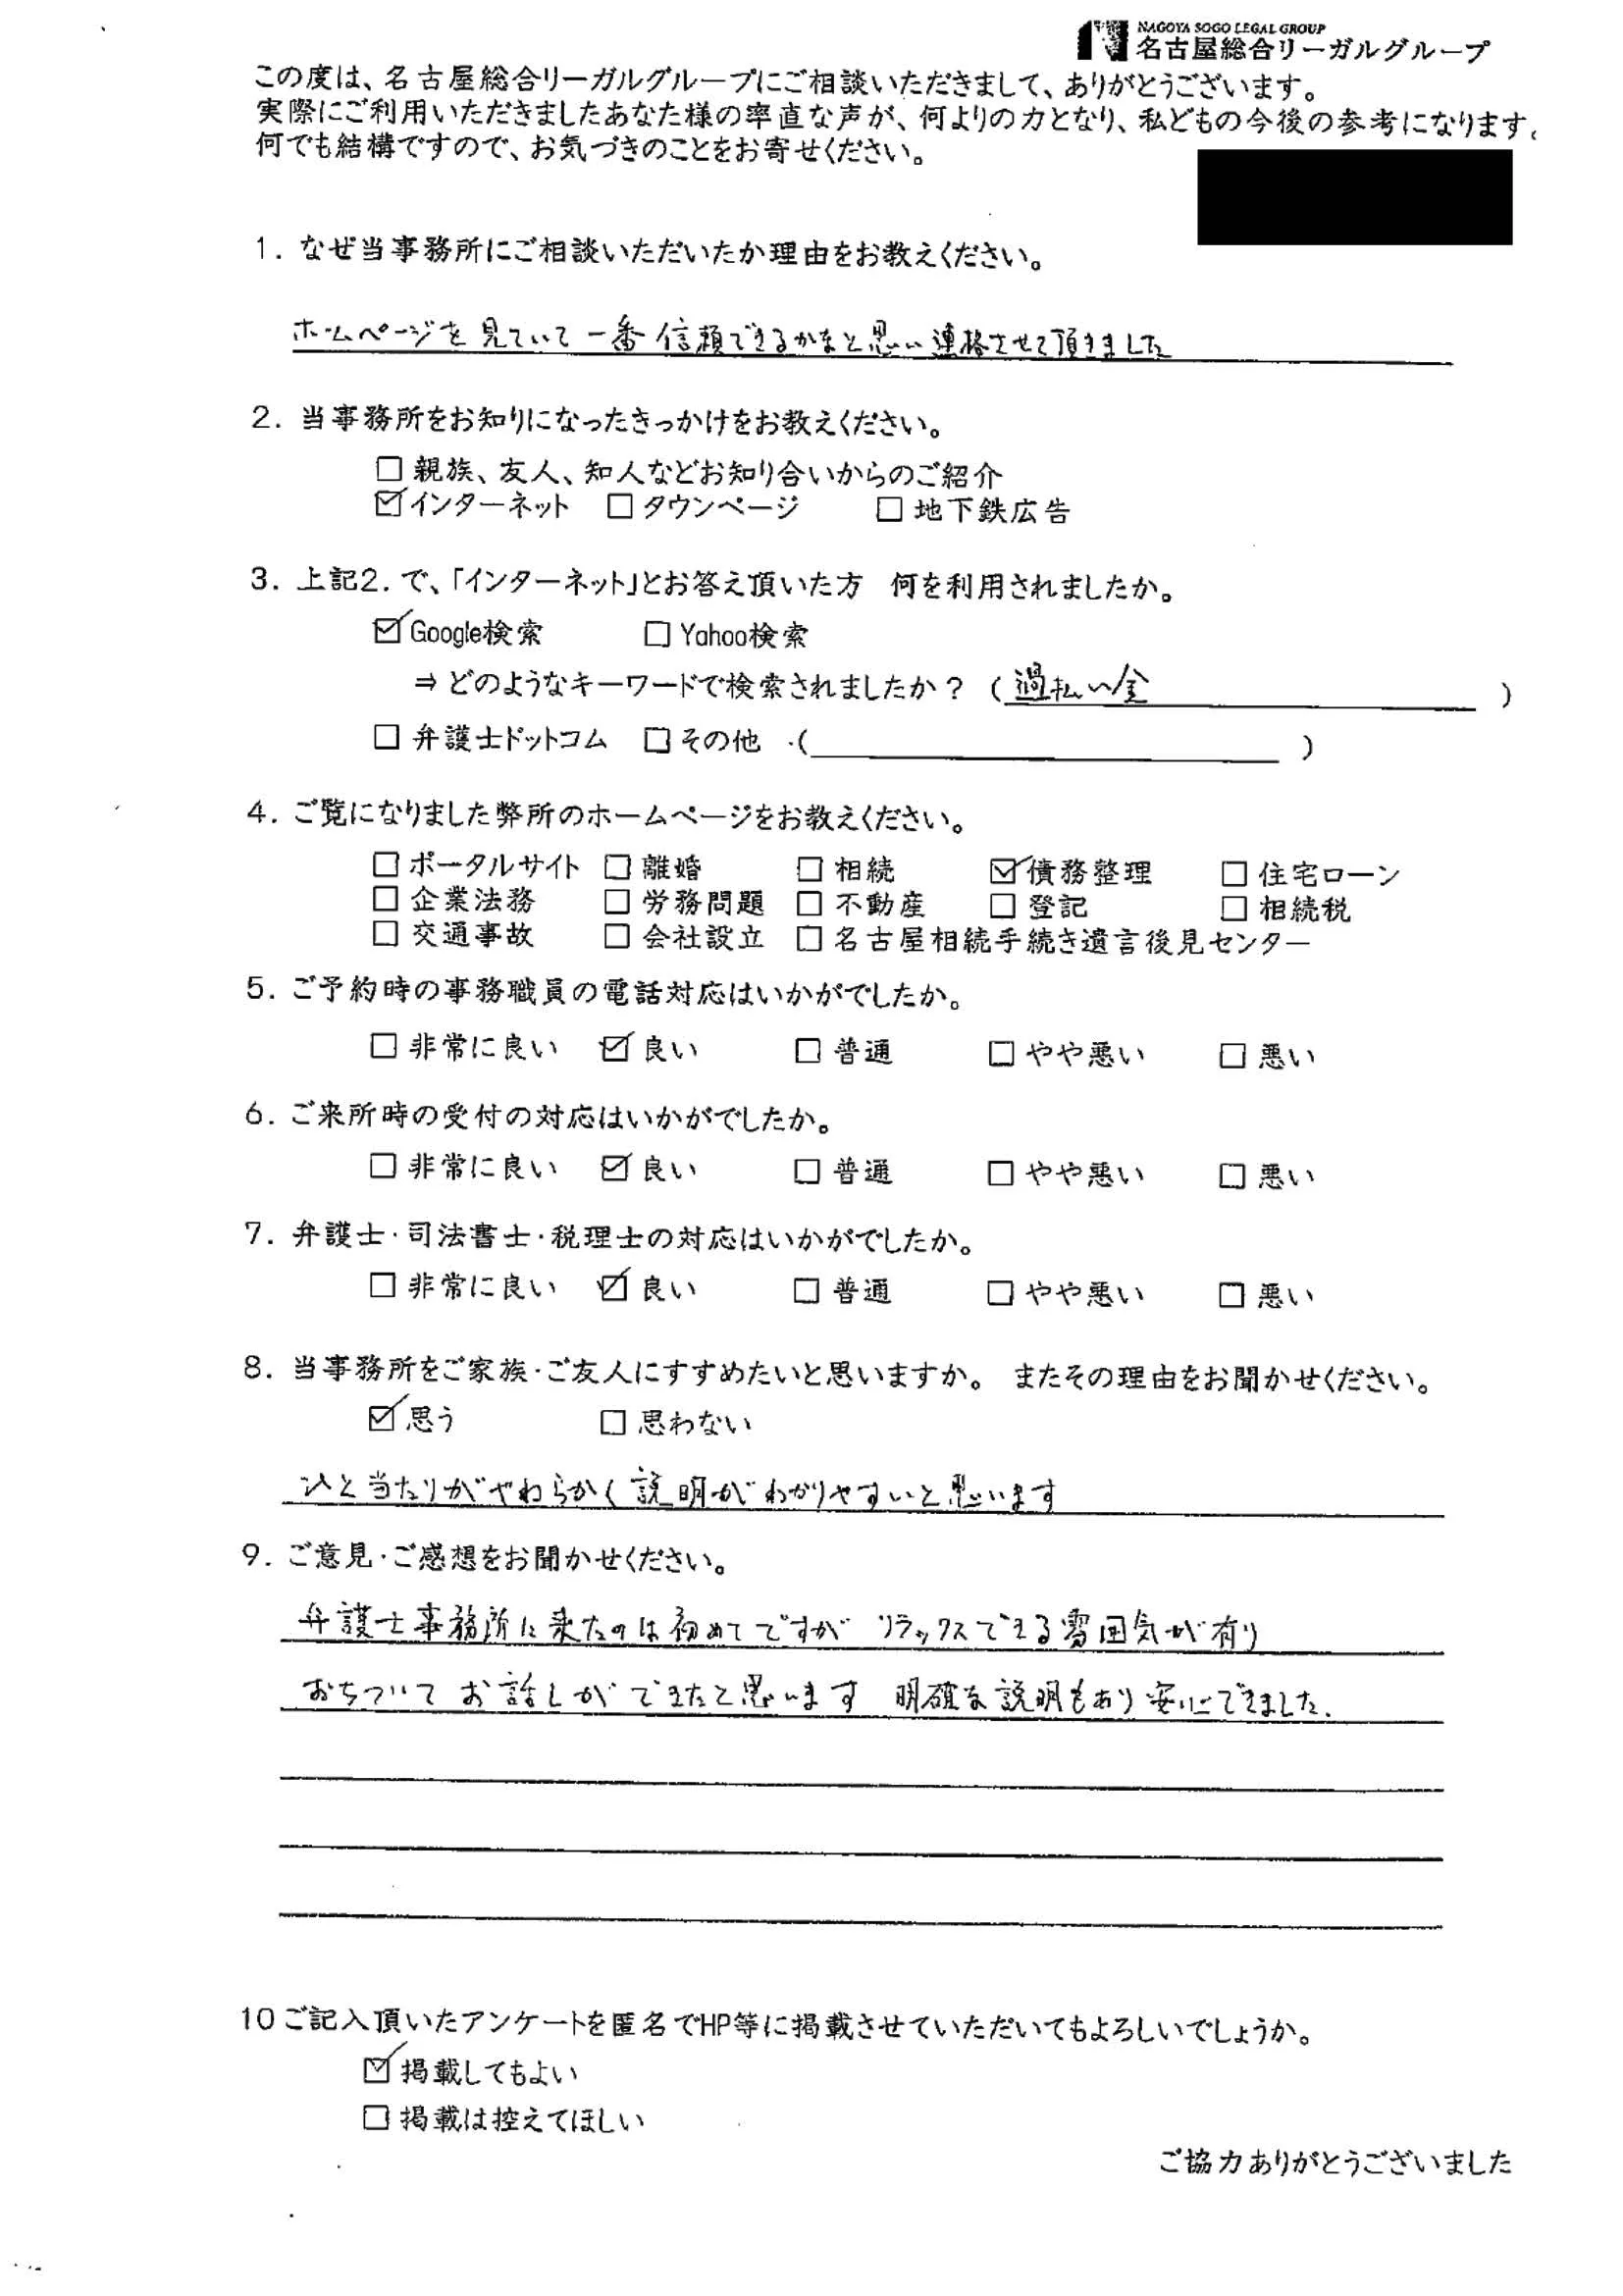 NAGOYA SOGO LEGAL GROUP
名古屋総合リーガルグループ
この度は、名古屋総合リーガルグループにご相談いただきまして、ありがとうございます。
実際にご利用いただきましたあなた様の率直な声が、何よりの力となり、私どもの今後の参考になります。
何でも結構ですので、お気づきのことをお寄せください。
1. なぜ当事務所にご相談いただいたか理由をお教えください。
ホームページを見ていて一番信頼できるかなと思い連絡させて頂きました
2. 当事務所をお知りになったきっかけをお教えください。
□ 親族、友人、知人などお知り合いからのご紹介
☑インターネット □ タウンページ □ 地下鉄広告
3. 上記2. で、「インターネット」とお答え頂いた方 何を利用されましたか。
☑Google検索 □ Yahoo検索
⇒ どのようなキーワードで検索されましたか? (過払い金)
□ 弁護士ドットコム □ その他 ( )
4. ご覧になりました弊所のホームページをお教えください。
□ ポータルサイト □ 離婚 □ 相続 ☑債務整理 □ 住宅ローン
□ 企業法務 □ 労務問題 □ 不動産 □ 登記 □ 相続税
□ 交通事故 □ 会社設立 □ 名古屋相続手続き遺言後見センター
5. ご予約時の事務職員の電話対応はいかがでしたか。
□ 非常に良い ☑ 良い □ 普通 □ やや悪い □ 悪い
6. ご来所時の受付の対応はいかがでしたか。
□ 非常に良い ☑ 良い □ 普通 □ やや悪い □ 悪い
7. 弁護士・司法書士・税理士の対応はいかがでしたか。
□ 非常に良い ☑ 良い □ 普通 □ やや悪い □ 悪い
8. 当事務所をご家族・ご友人にすすめたいと思いますか。 またその理由をお聞かせください。
☑思う □ 思わない
ひと当たりがやわらかく説明がわかりやすいと思います
9. ご意見・ご感想をお聞かせください。
弁護士事務所に来たのは初めてですが リラックスできる雰囲気が有り
おちついてお話しができたと思います 明確な説明もあり安心できました.
10 ご記入頂いたアンケートを匿名でHP等に掲載させていただいてもよろしいでしょうか。
☑掲載してもよい
□ 掲載は控えてほしい
ご協力ありがとうございました